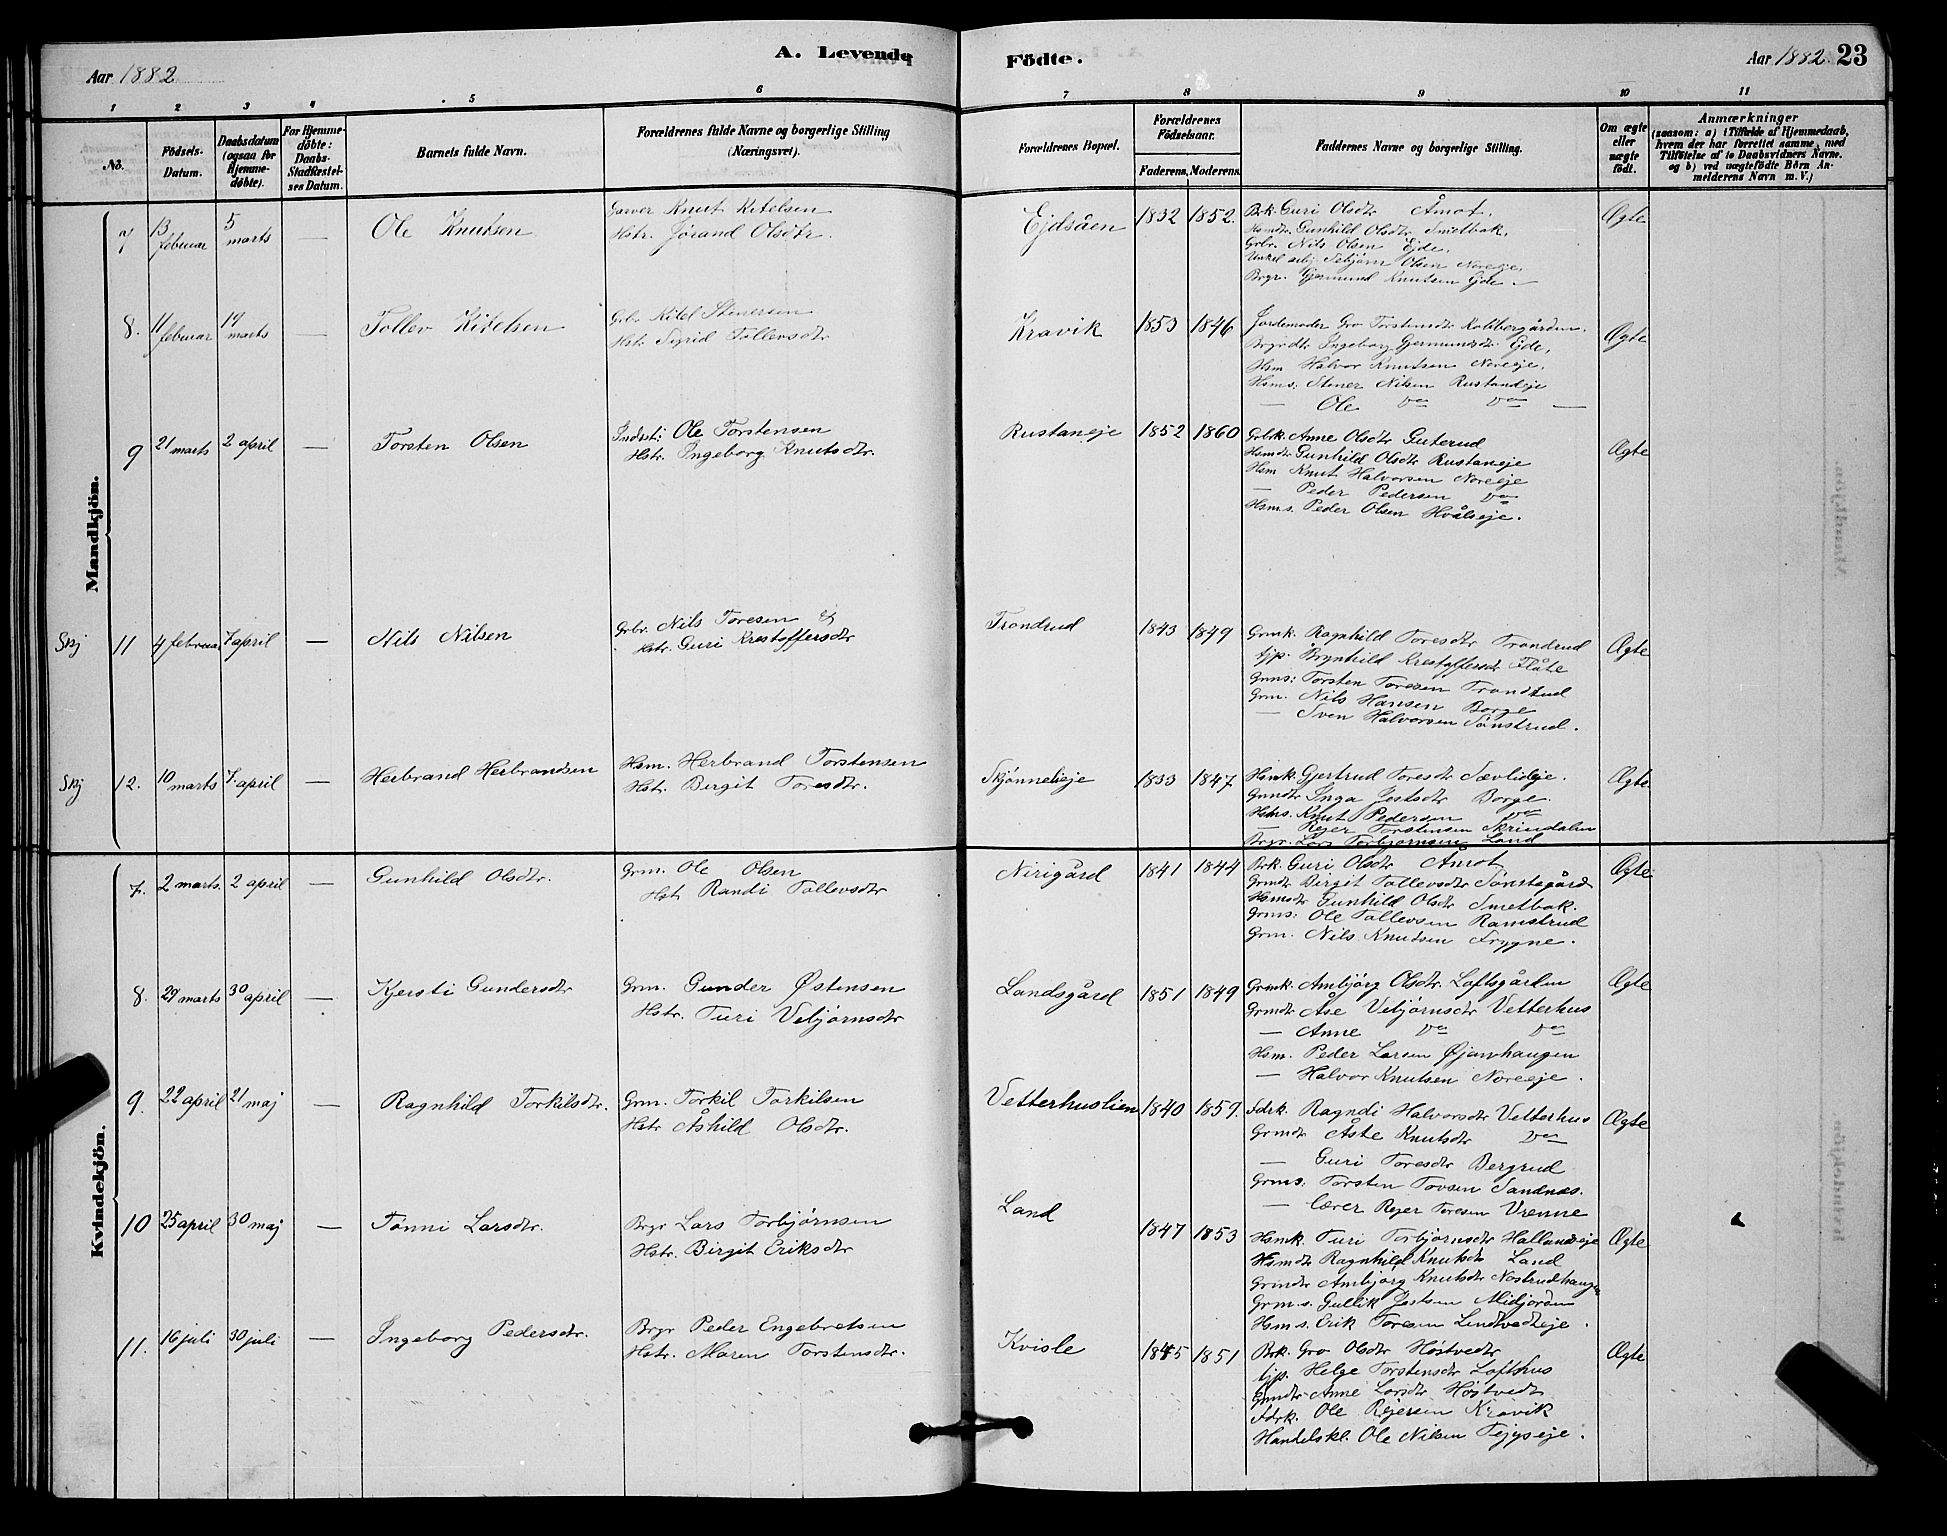 A. Levende Födte.
Aar 1882
Aar 1882. 23
1 2 3 4 5 6 7 8 9 10 11
No.
Födsels-Datum.
Daabsdatum (ogsaa for Hjemme-döbte).
For Hjemme-döbte: Daabs-Stadfæstel-ses Datum.
Barnets fulde Navn.
Forældrenes fulde Navne og borgerlige Stilling (Næringsvei).
Forældrenes Bopæl.
Forældrenes Födselsaar.
Faderens. Moderens.
Faddernes Navne og borgerlige Stilling.
Om ægte eller uægte födt.
Anmærkninger
(saasom: a) i Tilfælde af Hjemmedaab, hvem der har forrettet samme, med Tilföielse af to Daabsvidners Navne. og b) ved uægtefödte Börn An-melderens Navn m. V.)
Mandkjön.
7 13 februar 5 marts — Ole Knutsen
Garver Knut Kitelsen
Hstr. Jörand Olsdtr.
Ejdsåen 1832 1852.
Brk. Guri Olsdtr Åmot.
Hsmdtr. Gunhild Olsdtr Smetbak.
Grbr. Nils Olsen Ejde.
Olsen Noreeje.
Brgr. Gjermund Knutsen Ejde.
Ægte
8. 11 februar 19 marts — Tollev Kitelsen
Grbr Kitel Stenersen
Hstr. Sigrid Tollevsdtr
Kravik 1853 1846
Jordemoder Gro Torstensdtr Kolbergården.
Brgrdtr Ingeborg Gjermundsdtr Ejde.
Hsm Halvor Knutsen Noreeje.
Hsms. Stener Nilsen Rustandeje
— Ole Do Do —
Ægte
9 21 marts 2 april — Torsten Olsen
Inderst: Ole Torstensen
Hstr. Ingeborg Knutsdtr.
Rustaneje 1852 1860
Grbrk. Anne Olsdtr Guterud
Hsmdtr Gunhild Olsdtr Rustaneje
Hsm Knut Halvorsen Noreeje
— Peder Pedersen Do
Hsms. Peder Olsen Hvålseje.
Ægte
Skj 11 4 februar 7 april — Nils Nilsen
Grbr. Nils Toresen &
Hstr. Guri Krestoffersdtr
Trondrud 1843 1849
Grmk. Ragnhild Toresdtr Trondrud
tjp. Brynhild Krestoffersdtr Flåte
Grms: Torsten Toresen Trondrud
Grm. Nils Hansen Borge
— Sven Halvorsen Sönstrud.
Ægte
Skj 12. 10 marts 7. april — Herbrand Herbrandsen
Hsm. Herbrand Torstensen
Hstr. Birgit Toresdtr.
Skjönneleje 1833 1847
Hsmk. Gjertrud Toresdtr Sævlideje.
Grmdtr Inga Jostsdtr Borge.
Hsms. Knut Pedersen Do
— Rejer Torstensen Skrindalen
Brgr. Lars Torbjörnsen Land
Ægte
Kvindekjön.
7. 2 marts. 2 april — Gunhild Olsdtr.
Grm. Ole Olsen
Hstr Randi Tollevsdtr
Nirigård 1841 1844
Brk. Guri Olsdtr Åmot
Grmdtr Birgit Tollevsdtr Sönstegård
Hsmdtr Gunhild Olsdtr Smetbak.
Grms: Ole Tollevsen Ramstrud
Grm. Nils Knutsen Frygne.
Ægte
8. 29 marts 30 april — Kjersti Gundersdtr
Grm. Gunder Østensen
Hstr. Turi Vebjörnsdtr
Landsgård 1851 1849
Grmk. Ambjörg Olsdtr. Loftsgården
Grmdtr Åse Vebjörnsdtr Vetterhus
— Anne Do Do
Hsm. Peder Larsen Øjanhaugen
— Halvor Knutsen Noreeje.
Ægte
9. 22 april 21 maj — Ragnhild Torkilsdtr.
Grm. Torkil Torkilsen
Hstr Åshild Olsdtr.
Vetterhuslien 1840 1859.
Fdrk. Ragndi Halvorsdtr Vetterhus
Grmdtr Åste Knutsdtr Do
— Guri Toresdtr Bergrud
Grms. Torsten Tovsen Sandnæs.
— Lærer Rejer Toresen Vrenne
Ægte
10 25 april 30 maj — Tönni Larsdtr.
Brgr Lars Torbjörnsen
Hstr. Birgit Eriksdtr
Land 1847 1853
Hsmk. Turi Torbjörnsdtr Hallandseje
Hsmdtr Ragnhild Knutsdtr Land
Grmdtr Ambjörg Knutsdtr Nöstrudhaugen
Grm.s. Gullik Jostsen Midjorden
Hsm s. Erik Toresen Lindtvedteje.
Ægte
11. 16 juli 30 juli — Ingeborg Pedersdtr.
Brgr Peder Engebretsen
Hstr. Maren Torstensdtr.
Kvisle 1845 1851
Brk. Gro Olsdtr Höstvedt
tjp. Helge Torstensdtr Lofthus
Grmdtr Anne Larsdtr Höstvedt
Fdrk. Ole Rejersen Kravik
Handelskl. Ole Nilsen Tejgseje.
Ægte